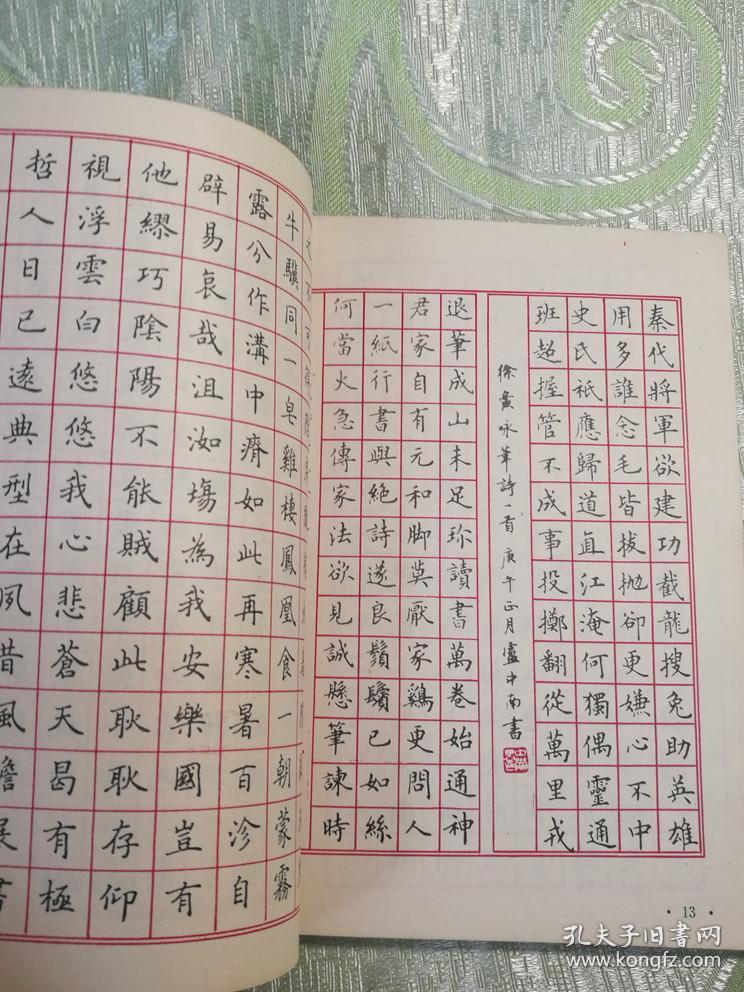 秦代將軍欲建功截龍搜兔助英雄
用多誰念毛皆拔抛卻更嫌心不中
史氏祇應歸道直江淹何獨偶靈通
班超握管不成事投擲翻從萬里戎
徐夤咏筆詩一首 庚午正月盧中南書
退筆成山未足珍讀書萬卷始通神
君家自有元和脚莫厭家鷄更問人
一紙行書與絕詩遂良鬚鬢已如絲
何當火急傳家法欲見誠懸筆諫時
·13·
牛驥同一皂雞棲鳳凰食一朝蒙霧
露分作溝中瘠如此再寒暑百沴自
辟易哀哉沮洳場為我安樂國豈有
他繆巧陰陽不能賊顧此耿耿存仰
視浮雲白悠悠我心悲蒼天曷有極
哲人日已遠典型在夙昔風簷展書
孔夫子旧书网
www.kongfz.com